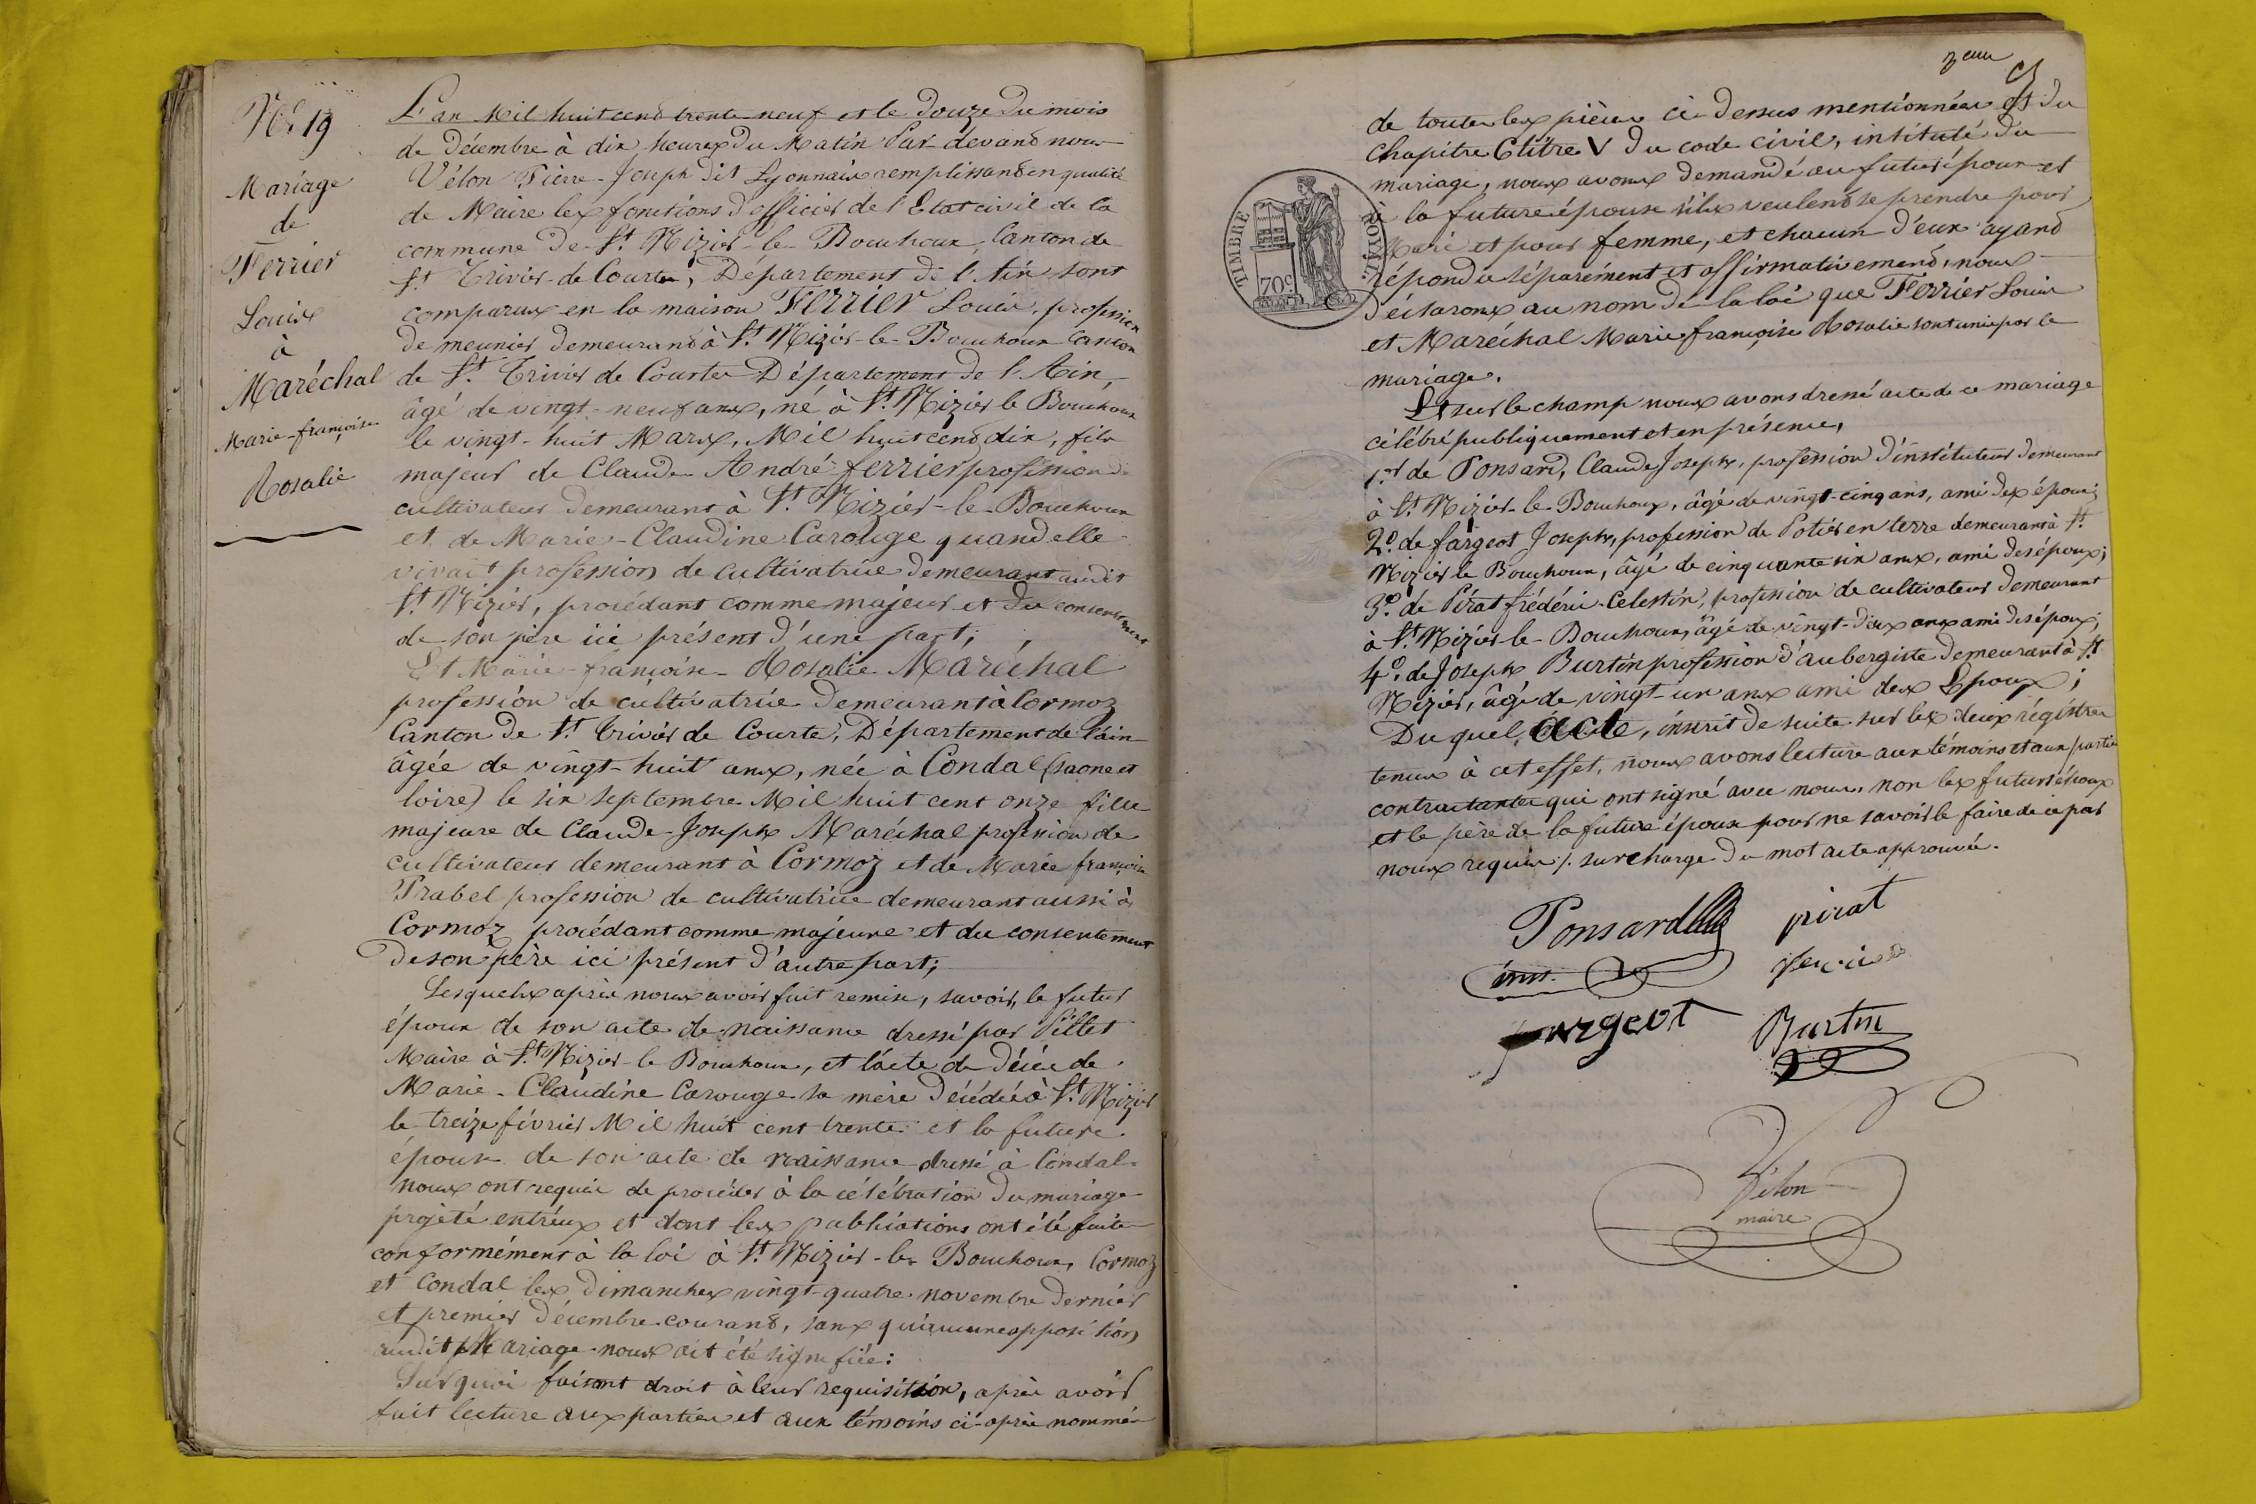 N.º 19
Mariage
de
Ferrier
Louis
à
Maréchal
Marie-françoise
Rosalie
L'an Mil huit cent trente neuf et le Douze du mois
de Décembre à dix heures du Matin Par devant nous
Vélon Pierre-Joseph dit Lyonnais remplissant en qualité
de Maire les fonctions d'officier de l'Etat civil de la
commune de St. Nizier-le-Bouchoux, Canton de
St. Trivier-de-Courtes, Département de l'Ain sont
comparus en la maison Ferrier Louis, profession
de meunier demeurant à St. Nizier-le-Bouchoux Canton
de St. Trivier de Courtes Département de l'Ain,
âgé de vingt-neuf ans, né à St. Nizier le Bouchoux
le vingt-huit Mars, Mil huit cent dix, fils
majeur de Claude André ferrier profession de
cultivateur demeurant à St. Nizier-le-Bouchoux
et de Marie-Claudine Carouge quand elle
vivait profession de cultivatrice demeurant audit
St. Nizier, procédant comme majeur et du consentement
de son père ici présent d'une part;
Et Marie-françoise-Rosalie Maréchal
profession de cultivatrice demeurant à Cormoz
Canton de St. Trivier de Courtes, Département de l'ain
âgée de vingt-huit ans, née à Condal (saone et
loire) le six septembre Mil huit cent onze fille
majeure de Claude-Joseph Maréchal profession de
cultivateur demeurant à Cormoz et de Marie françoise
Prabel profession de cultivatrice demeurant aussi à
Cormoz procédant comme majeure et du consentement
de son père ici présent d'autre part;
Lesquels après nous avoir fait remise, savoir, le futur
époux de son acte de naissance dressé par Pillet
Maire à St. Nizier-le-Bouchoux, et l'acte de décès de
Marie-Claudine Carouge sa mère décédée à St. Nizier
le treize février Mil huit cent trente et la future
épouse de son acte de naissance dressé à Condal
nous ont requis de procéder à la célébration du mariage
projeté entr'eux et dont les publications ont été faites
conformément à la loi à St. Nizier-le-Bouchoux, Cormoz
et Condal les dimanches vingt-quatre novembre dernier
et premier décembre courant, sans qu'aucune opposition
audit Mariage nous ait été signifiée:
Sur quoi faisant droit à leur requisition, après avoir
fait lecture aux parties et aux témoins ci-après nommés
TIMBRE ROYAL.
70c
de toutes les pièces ci-dessus mentionnées et du
chapitre 6 titre V du code civil, intitulé du
mariage, nous avons demandé au futur époux et
à la future épouse s'ils veulent se prendre pour
Mari et pour femme, et chacun d'eux ayant
répondu séparément et affirmativement, nous
déclarons au nom de la loi que Ferrier Louis
et Maréchal Marie françoise Rosalie sont unis par le
mariage.
Et sur le champ nous avons dressé acte de ce mariage
célébré publiquement et en présence,
1.er de Ponsard, Claude Joseph, profession d'instituteur demeurant
à St. Nizier-le-Bouchoux, âgé de vingt-cinq ans, ami des époux;
2.º de fargeot Joseph, profession de Potier en terre demeurant à St.
Nizier le Bouchoux, âgé de cinquante six ans, ami des époux;
3.º de Pirat frédéric-Celestin, profession de cultivateur demeurant
à St. Nizier-le-Bouchoux, âgé de vingt-deux ans ami des époux;
4.º de Joseph Burtin profession d'aubergiste demeurant à St.
Nizier, âgé de vingt-un ans ami des Epoux;
Du quel acte, inscrit de suite sur les deux régistres
tenus à cet effet, nous avons lecture aux témoins et aux parties
contractantes qui ont signé avec nous, non les futurs époux
et le père de la future épouse pour ne savoir le faire de ce par
nous requis /. surcharge du mot acte approuvée.
Ponsard
pirat
inst.
fargeot
Burtin
Vélon
maire